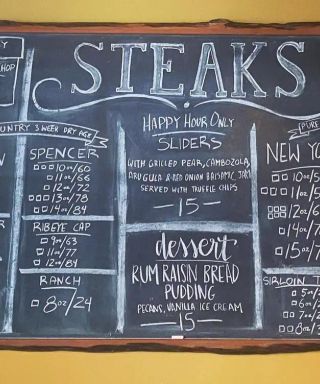 STEAKS
HOP
UNTRY 3 WEEK DRY AGE
SPENCER
10oz/60
11oz/66
12oz/72
13oz/78
14oz/84
RIBEYE CAP
9oz/63
11oz/77
12oz/84
RANCH
8oz/24
HAPPY HOUR ONLY
SLIDERS
WITH GRILLED PEAR, CAMBOZOLA,
ARUGULA & RED ONION BALSAMIC JAM
SERVED WITH TRUFFLE CHIPS
—15—
dessert
RUM RAISIN BREAD
PUDDING
PECANS, VANILLA ICE CREAM
—15—
PURE
NEW YO
10oz/5
11oz/5
12oz/6
14oz/7
15oz/7
SIRLOIN T
5oz/
6oz/
7oz/
8oz/3